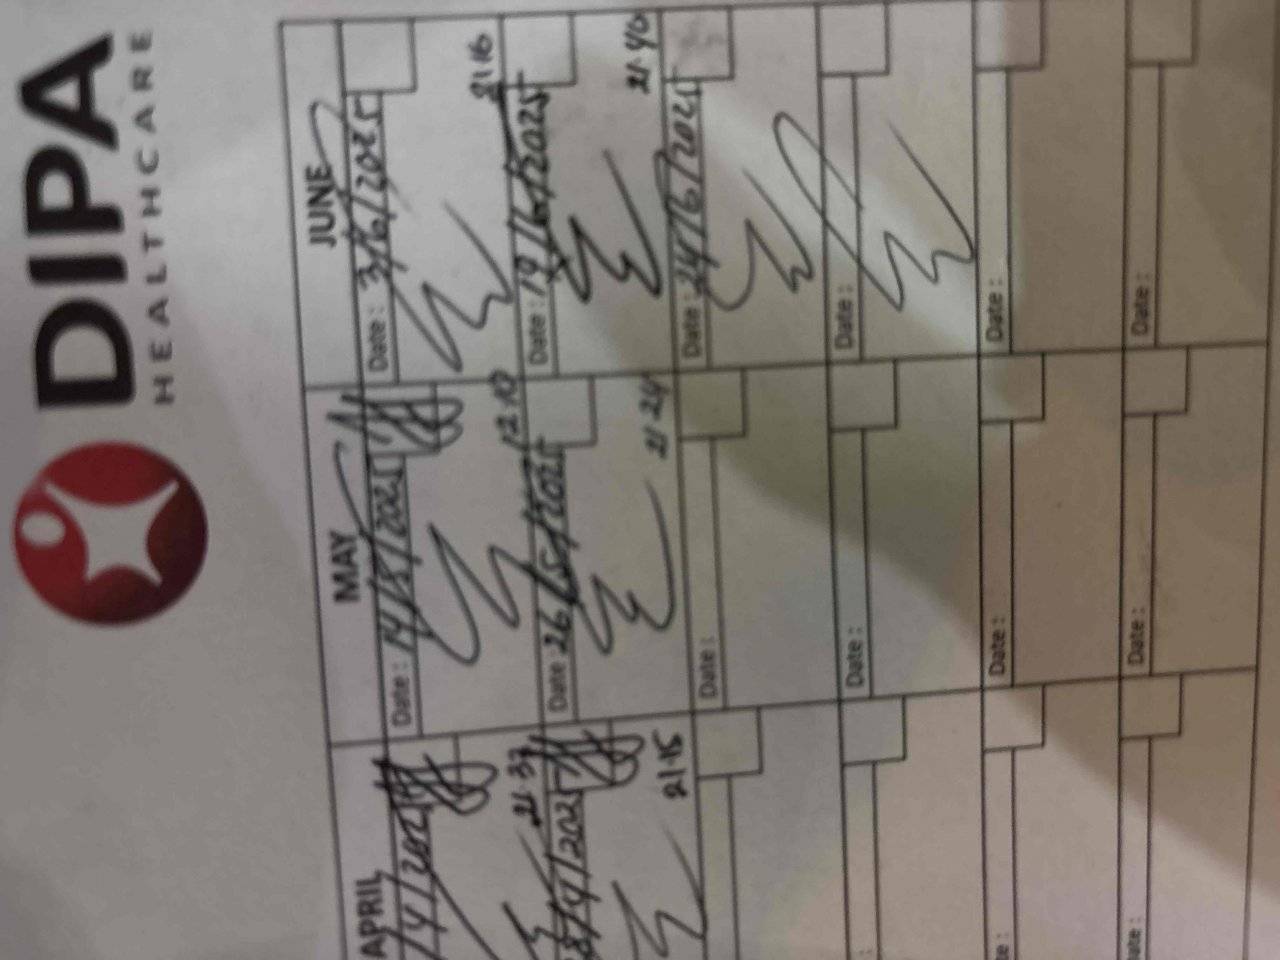 DIPA
HEALTHCARE
APRIL
MAY
JUNE
/4/2025
Date: 14/5/2025
Date: 3/6/2025
21:37
12:10
21:16
28/4/2025
Date: 26/5/2025
Date: 19/6/2025
21:15
21:24
21:40
Date:
Date: 24/6/2025
Date:
Date:
Date:
Date:
Date:
Date: